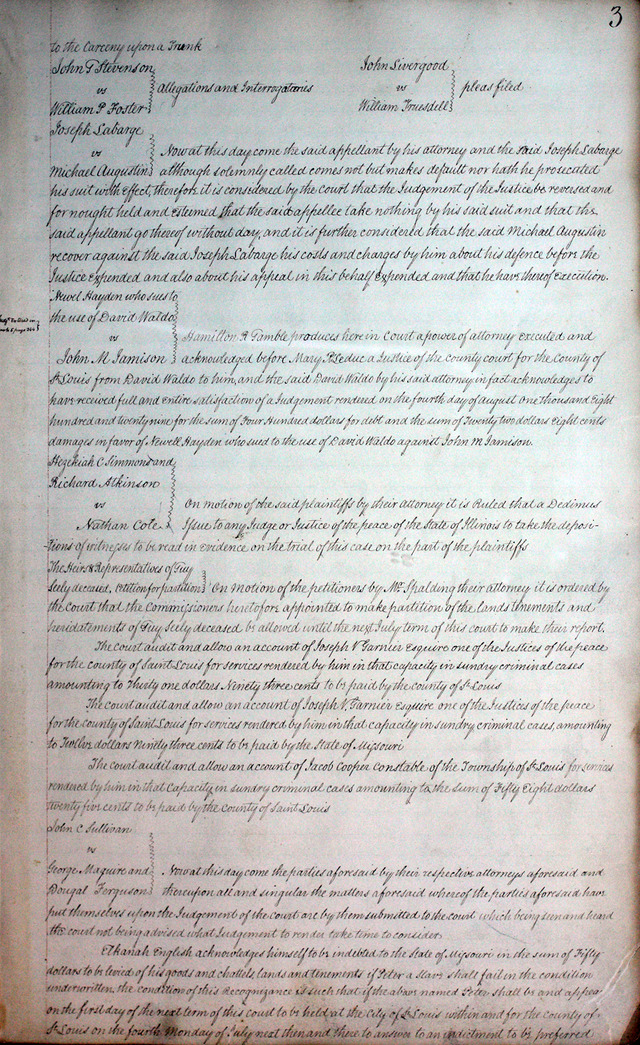 3
to the Careeny upon a Trunk
John T Stevenson
vs Allegations and Interrogatories
William P Foster
John Livergood
vs pleas filed
William Truesdell
Joseph Labarge
vs Now at this day come the said appellant by his attorney and the said Joseph Labarge
Michael Augustin although solemnly called comes not but makes default nor hath he prosecuted
his suit with effect, therefore it is considered by the court that the Judgement of the Justice be reversed and
for nought held and esteemed that the said appellee take nothing by his said suit and that the
said appellant go thereof without day, and it is further considered that the said Michael Augustin
recover against the said Joseph Labarge his costs and charges by him about his defence before the
Justice Expended and also about his appeal in this behalf Expended and that he have thereof execution.
Newel Hayden who sues to
the use of David Waldo
vs Hamilton R Gamble produces here in Court a power of attorney executed and
John M Jamison acknowledged before Mary P Leduc a Justice of the County court for the County of
St Louis from David Waldo to him, and the said David Waldo by his said attorney in fact acknowledges to
have received full and entire satisfaction of a Judgement rendered on the fourth day of august One thousand Eight
hundred and twenty nine for the sum of Four Hundred dollars for debt and the sum of Twenty two dollars Eight cents
damages in favor of Newell Hayden who sued to the use of David Waldo against John M Jamison.
Hezekiah C Simmons and
Richard Atkinson
vs On motion of the said plaintiffs by their attorney it is Ruled that a Dedimus
Nathan Cole Issue to any Judge or Justice of the peace of the State of Illinois to take the deposi-
-tions of witnesses to be read in evidence on the trial of this case on the part of the plaintiffs
The Heirs & Representatives of Guy
Seely deceased, Petition for partition On Motion of the petitioners by Mr Spalding their attorney it is ordered by
the court that the Commissioners heretofore appointed to make partition of the lands tenements and
heridatements of Guy Seely deceased be allowed until the next July term of this court to make their report.
The court audit and allow an account of Joseph V Garnier Esquire one of the Justices of the peace
for the county of Saint Louis for services rendered by him in that capacity in sundry criminal cases
amounting to Thirty one dollars Ninety three cents to be paid by the county of St Louis
The court audit and allow an account of Joseph V. Garnier Esquire one of the Justices of the peace
for the county of Saint Louis for services rendered by him in that capacity in sundry criminal cases, amounting
to Twelve dollars Ninety three cents to be paid by the State of Missouri
The court audit and allow an account of Jacob Cooper Constable of the Township of St Louis for services
rendered by him in that Capacity in sundry criminal cases amounting to the sum of Fifty Eight dollars
twenty five cents to be paid by the County of Saint Louis
John C Sullivan
vs
George Maguire and Now at this day come the parties aforesaid by their respective attorneys aforesaid and
Dougal Ferguson thereupon all and singular the matters aforesaid whereof the parties aforesaid have
put themselves upon the Judgement of the court are by them submitted to the court which being seen and heard
the court not being advised what Judgement to render take time to consider.
Elkanah English acknowledges himself to be indebted to the State of Missouri in the sum of Fifty
dollars to be levied of his goods and chattels, lands and tenements if Peter a slave shall fail in the condition
underwritten, the condition of this Recognizance is such that if the above named Peter shall be and appear
on the first day of the next term of this court to be held at the City of St Louis within and for the county of
St Louis on the fourth Monday of July next then and there to answer to an indictment to be preferred